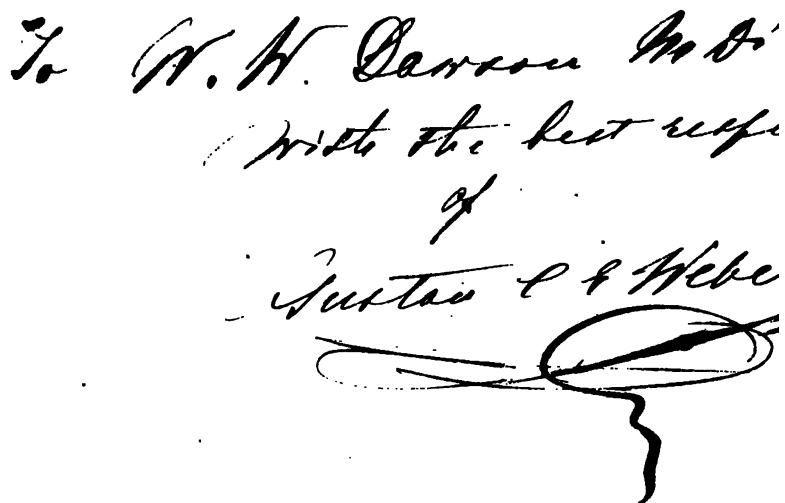 To W. W. Dawson M Di
with the best respe
of
Gustav C E Webe